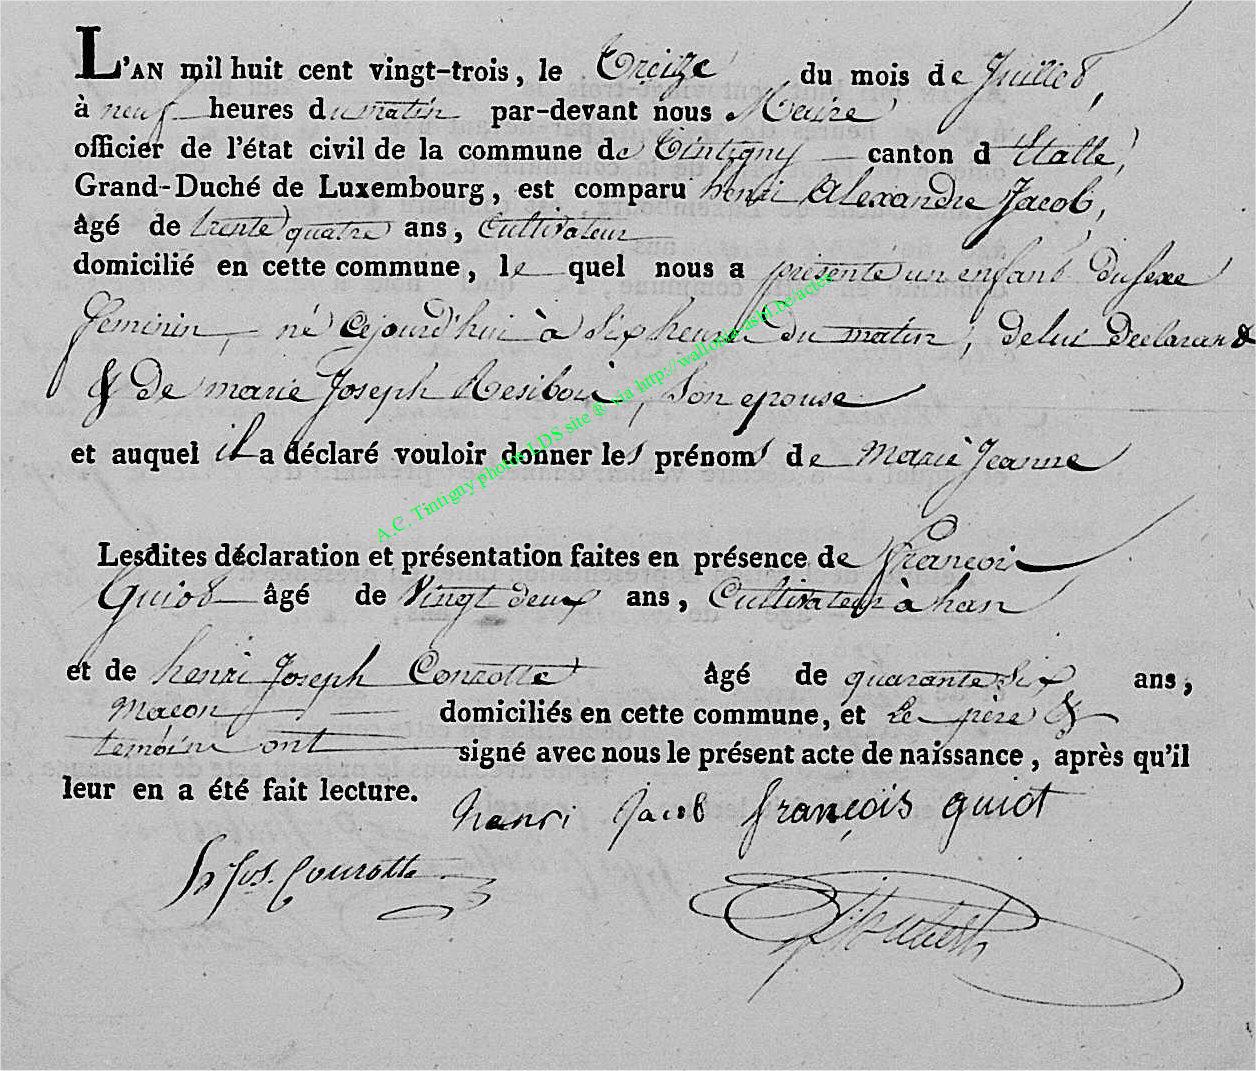 L'AN mil huit cent vingt-trois, le Treize du mois de Juillet,
à neuf heures du matin par-devant nous Maire
officier de l'état civil de la commune de Tintigny canton d'Etalle,
Grand-Duché de Luxembourg, est comparu henri Alexandre Jacob,
âgé de trente quatre ans, Cultivateur
domicilié en cette commune, le quel nous a présenté un enfant du sexe
feminin, né cejourd'hui à six heures du matin, de lui Declarant
& De marie Joseph Resibois, son epouse
et auquel il a déclaré vouloir donner les prénoms de Marie Jeanne
A.C. Tintigny photos LDS site & via http://wallonia-asbl.be/actes
Lesdites déclaration et présentation faites en présence de françois
Guiot âgé de Vingt deux ans, Cultivateur à han
et de henri Joseph Courotte âgé de quarante six ans,
Macon domiciliés en cette commune, et Le père &
temoins ont signé avec nous le présent acte de naissance, après qu'il
leur en a été fait lecture.
henri Jacob françois guiot
h jos. Courotte